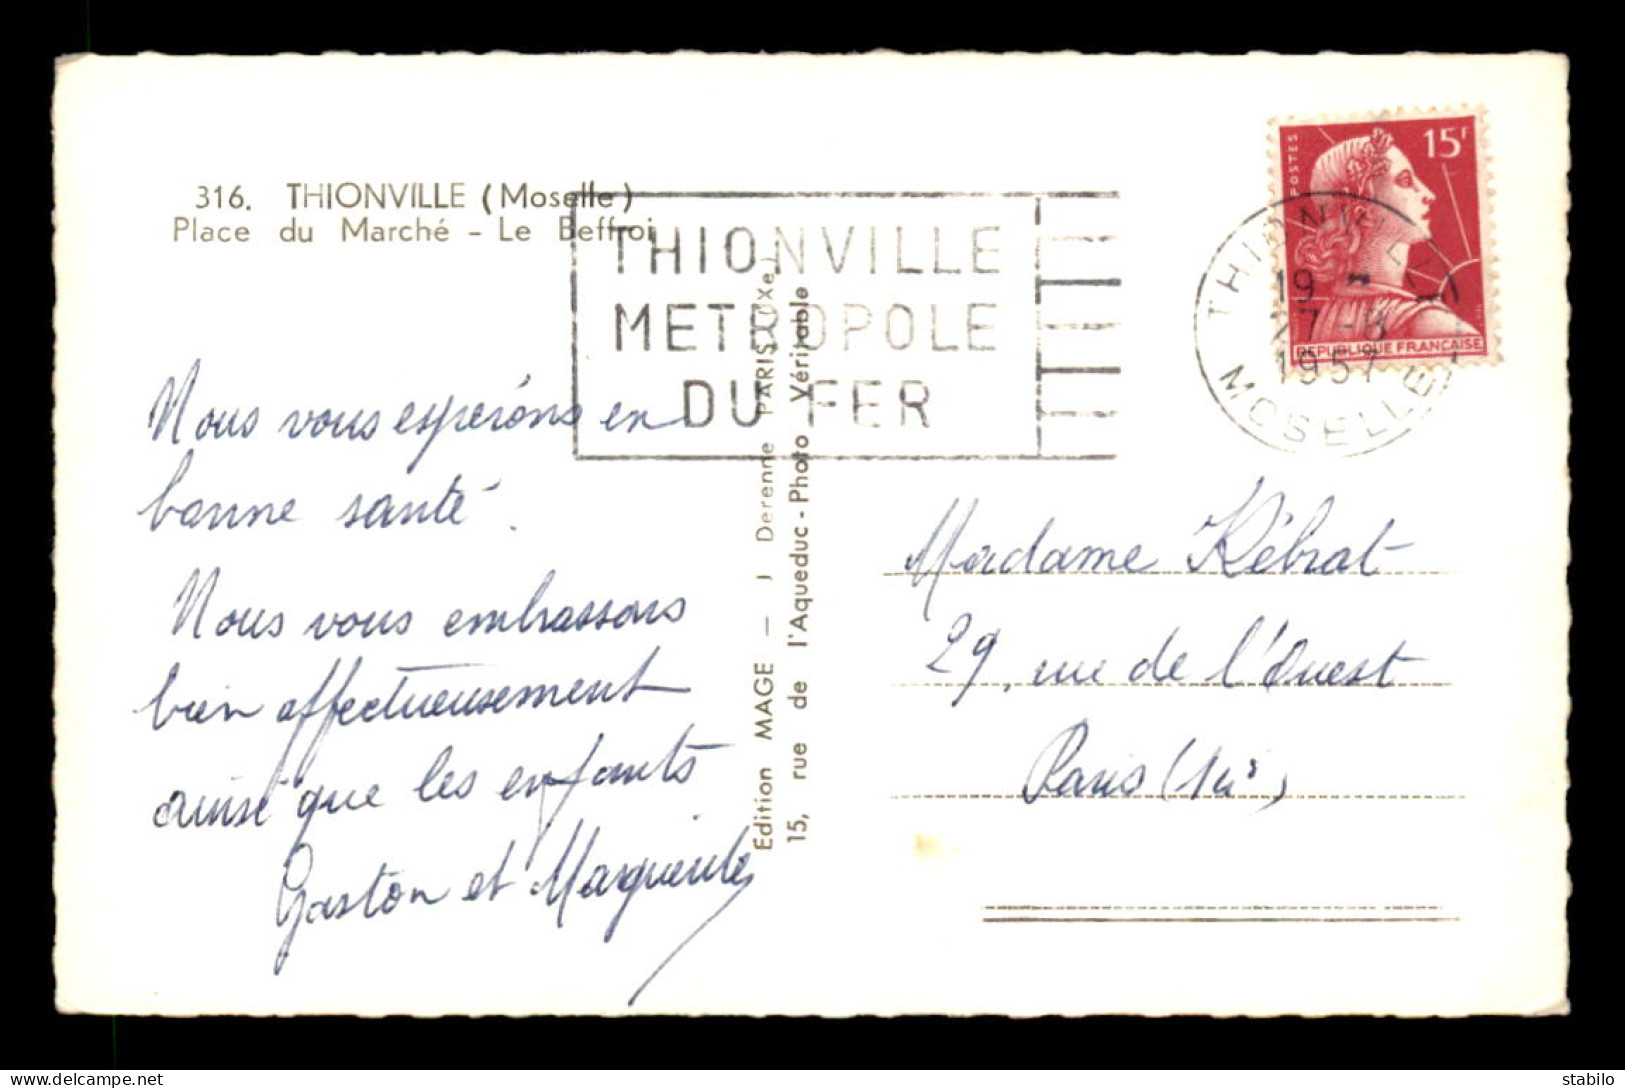 316. THIONVILLE (Moselle)
Place du Marché - Le Beffroi
THIONVILLE
METROPOLE
DU FER
POSTES
15F
REPUBLIQUE FRANÇAISE
THIONVILLE
19 -
27-8
1957
MOSELLE
Nous vous espérons en
bonne santé.
Nous vous embrassons
bien affectueusement
ainsi que les enfants
Gaston et Marguerite
Edition MAGE — J Derenne PARIS (IXe)
15, rue de l'Aqueduc - Photo Véritable
Madame Kébrat
29, rue de l'Ouest
Paris
delcampe.net
stabilo